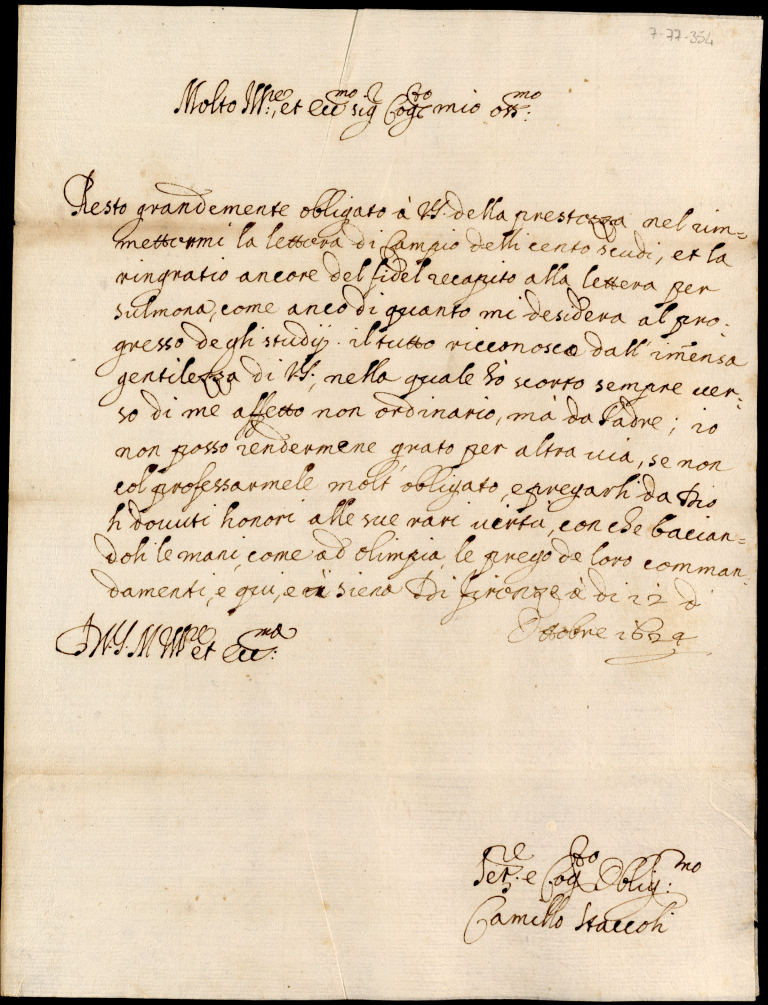 7-77-354
Molto Ill:re, et ecc:mo sig. Cog:to mio oss:mo
Resto grandemente obligato à V.S. della prestezza nel rim=
mettermi la lettera di Cambio delli cento scudi, et la
ringratio ancora del fidel recapito alla lettera per
Sulmona, come anco di quanto mi desidera al pro-
gresso degli studij. il tutto riconosco dall' imensa
gentilezza di V.S., nella quale hò scorto sempre ver-
so di me affetto non ordinario, mà da Padre; io
non posso rendermene grato per altra via, se non
col professarmele molt' obligato, e pregarli da Dio
li dovuti honori alle sue rari virtù, con che bacian=
doli le mani, come ad olimpia, le prego de loro comman
damenti, e qui, e à siena Di firenze à di 12 d
Ottobre 1624
D V.S. M Ill:re et ecc:ma
Ser:re e Cog:to Oblig:mo
Camillo Staccoli